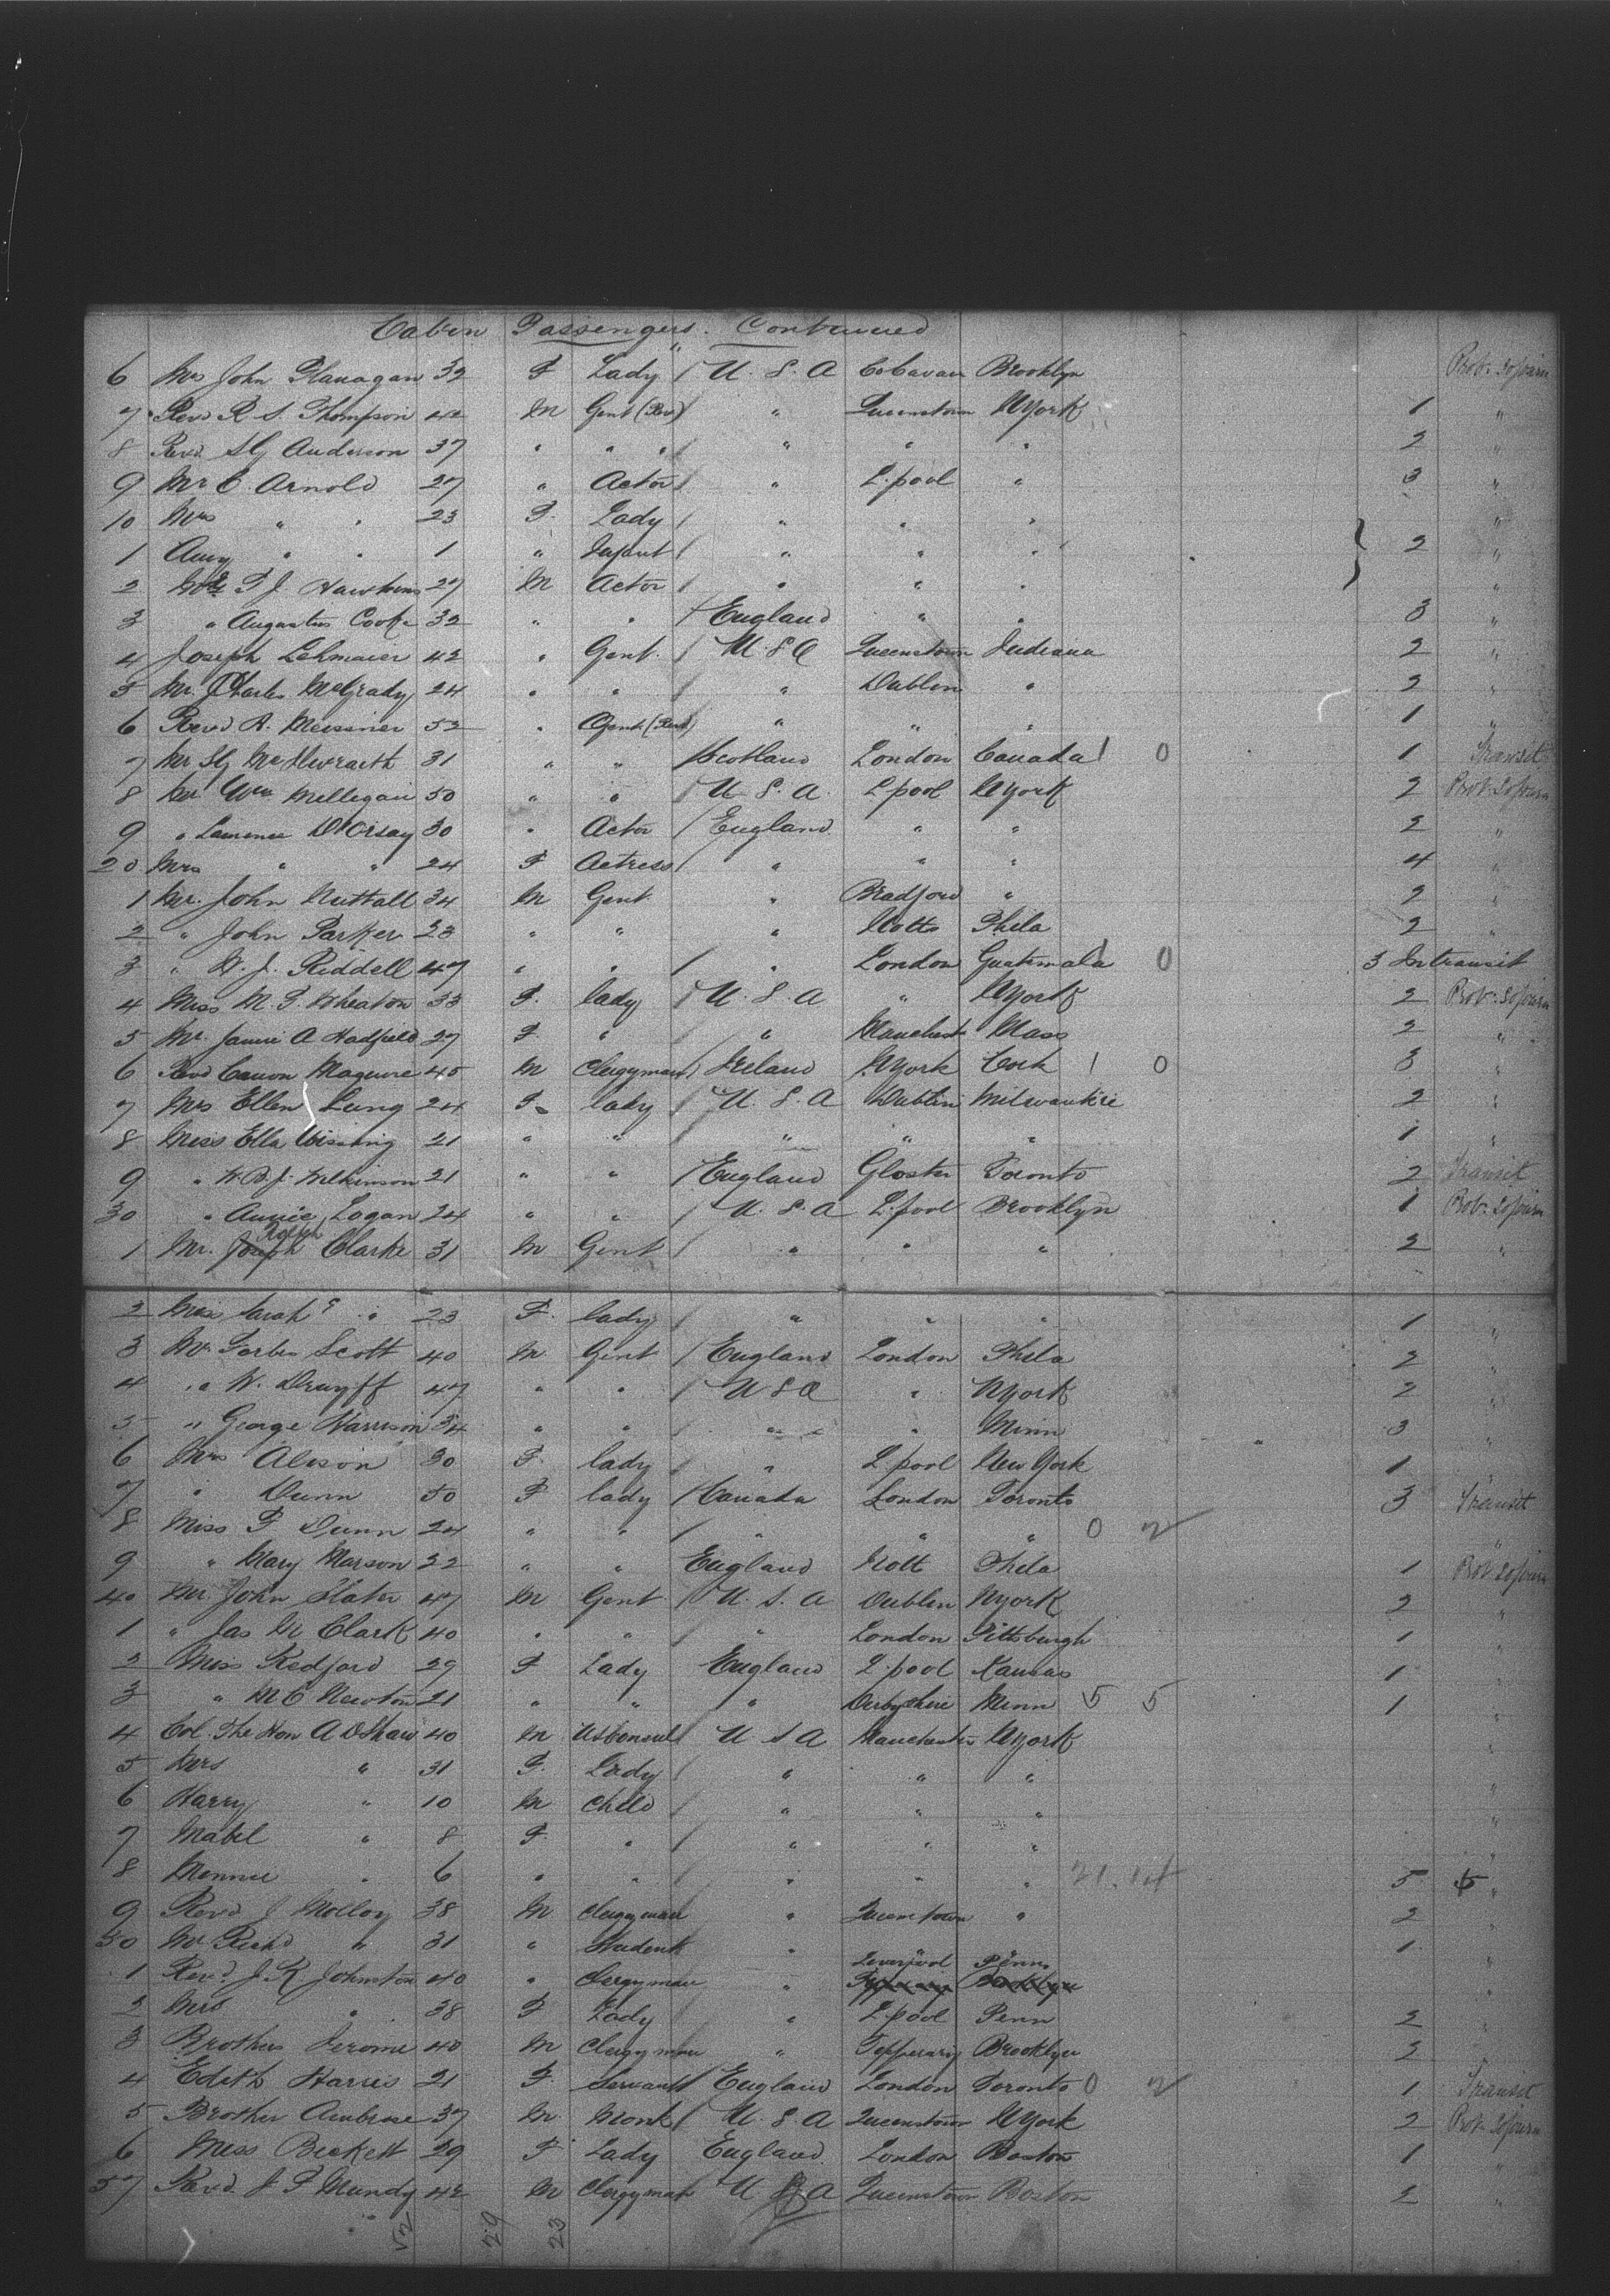 Cabin Passengers. Continued
6 Mrs John Flanagan 32 F Lady / U. S. A Co Cavan Brooklyn Prob: Sojourn
7 Revd R. S. Thompson 42 M Gent (Rev) / " Queenstown NYork 1 "
8 Revd SG Anderson 37 " " " / " " " 2 "
9 Mr C. Arnold 27 " Actor / " L.pool " 3 "
10 Mrs " " 23 F. Lady / " " " "
1 Amy " " 1 " Infant / " " " 2 "
2 T J. Hawkins 27 M Actor / " " " "
3 " Augustus Cooke 32 " " / England " " 3 "
4 Joseph Lehmaier 42 " Gent. / U. S A Queenstown Indiana 2 "
5 Mr. Charles McGrady 24 " " / " Dublin " 2 "
6 Revd A. Messner 52 " Gent (Rev) " " " 1 "
7 Mr McIlwraith 31 " " Scotland London Canada 1 0 1 Transit
8 Mr. Wm Millegan 50 " " / U. S. A. L pool NYork 2 Prob: Sojourn
9 " Lawrence D'Orsay 30 " Actor / England " " 2 "
20 Mrs " " 24 F Actress / " " " 4 "
1 Mr. John Nuttall 34 M Gent " Bradford " 2 "
2 " John Parker 23 " " " Notts Phila 2 "
3 " W. J. Riddell 47 " " / " London Guatemala 1 0 3 In transit
4 Miss M. F. Wheaton 33 F. lady / U. S. A " NYork 2 Prob: Sojourn
5 Mr. A Hadfield 27 F. " " Manchest Mass 2 "
6 Revd Canon Maguire 45 M Clergyman / Ireland NYork Cork 1 0 3 "
7 Mrs Ellen Lung 24 F. lady / U. S. A Dublin Milwaukie 2 "
8 Miss Ella 21 " " " " " 1 "
9 " W. B. J. Wilkinson 21 " " / England Gloster Toronto 2 Transit
30 " Annie Logan 24 " " / U. S. A L.pool Brooklyn 1 Prob: Sojourn
1 Mr. Joseph Ralph Clarke 31 M Gent / " " " 2 "
2 Sarah " 23 F. lady / " " " 1 "
3 Mr Forbes Scott 40 M. Gent / England London Phila 2 "
4 " W. 47 " " / U S A " NYork 2 "
5 " George Harrison 34 " " / " " Minn 3 "
6 Mrs Alison 30 F. lady / " L pool New York 1 "
7 " Dunn 50 F lady / Canada London Toronto 3 Transit
8 Miss F Dunn 24 " " / " " " 0 2 "
9 " Mary Marson 22 " " England Nott Phila 1 Prob: Sojourn
40 Mr. John Slater 47 M Gent / U. S. A Dublin NYork 2 "
1 " Jas Clark 40 " " / " London Pittsburgh 1 "
2 Miss Redford 29 F Lady England L. pool Kansas 1 "
3 " M C Newton 21 " " " Derbyshire Minn 5 5 1 "
4 Col. The Hon A D Shaw 40 M US Consul U S A Manchester NYork "
5 Mrs " 31 F. Lady / " " " "
6 Harry " 10 M Child / " " " "
7 Mabel " 8 F. " / " " " "
8 Minnie " 6 " " / " " " 5 "
9 Revd J Molloy 38 M Clergyman " Queenstown " 2 "
50 Mr Richd " 31 " Student " " " 1 "
Liverpool Penn
1 Revd. J. K. Johnston 40 " Clergyman " "
2 Mrs " 38 F Lady " L.pool Penn 2 "
3 Brother Jerome 40 M Clergyman " Tipperary Brooklyn 2 "
4 Edith Harris 21 F. Servant England London Toronto 0 2 1 Transit
5 Brother Ambrose 37 M. Monk / U. S A Queenstown NYork 2 Prob: Sojourn
6 Miss Beckett 29 F Lady England. London Boston 1 "
57 Revd. J. P Mundy 42 M Clergyman U S A Queenstown Boston 2 "
52 29 23